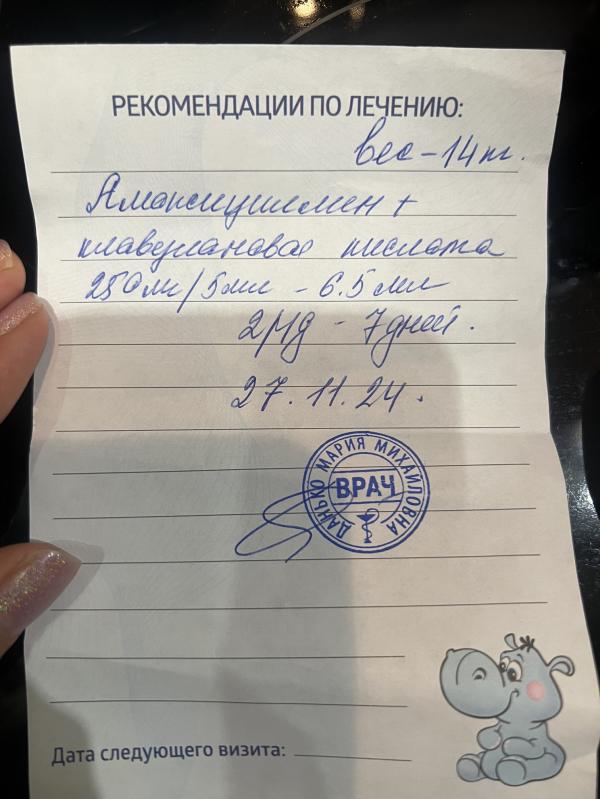 РЕКОМЕНДАЦИИ ПО ЛЕЧЕНИЮ:
вес - 14 кг.
Амоксициллин +
клавулановая кислота
250 мг/5мл - 6.5 мл
2р/д - 7 дней.
27.11.24.
ДАНЬКО МАРИЯ МИХАЙЛОВНА
ВРАЧ
Дата следующего визита: